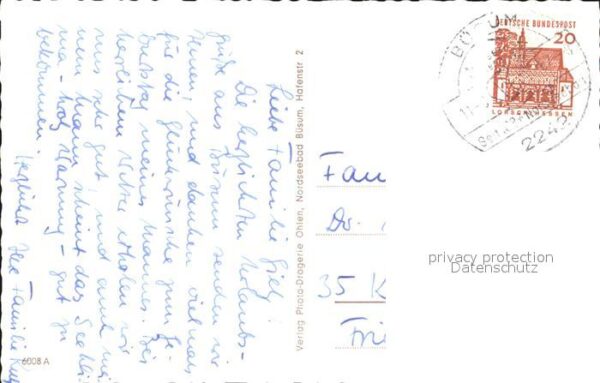 Liebe Familie
Die herzlichsten Urlaubs-
grüße aus Büsum senden wir
Ihnen, und danken vielmals
für die Glückwünsche zum Ge-
burtstag meines Mannes. Bei
herrlichem Wetter erholen wir
uns sehr gut, und auch mei-
nem Mann scheint das Seekli-
ma - trotz Warnung - gut zu
bekommen.
Herzlichst Ihre Familie
6008 A
Verlag Photo-Drogerie Ohlen, Nordseebad Büsum, Hafenstr. 2
Fam
Dr.
35 K
DEUTSCHE BUNDESPOST
20
LORSCH/HESSEN
BÜSUM
2242
privacy protection
Datenschutz